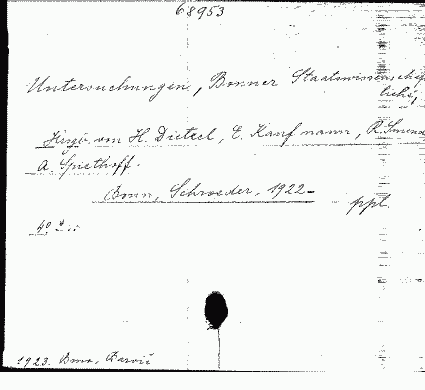 68953
Untersuchungen, Bonner Staatswissenschaft
liche,
Hrsgb. von H. Dietzel, E. Kaufmann, R. Smend
A. Spiethoff.
Bonn, Schroeder, 1922-
ppl.
4°
1923. Brno, Barvič